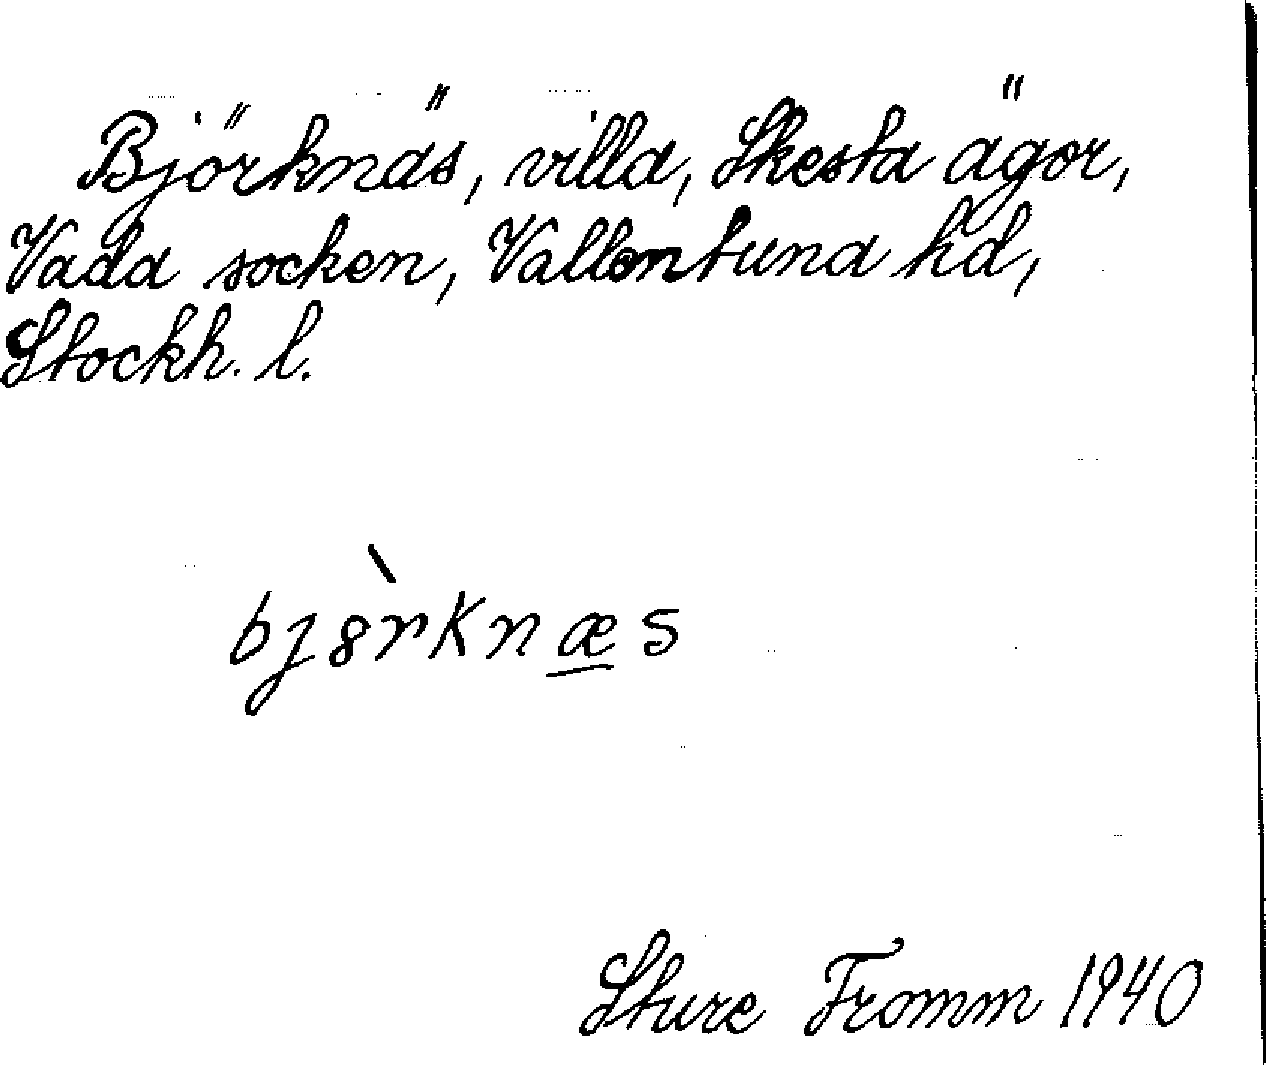 Björknäs, villa, Skesta ägor,
Vada socken, Vallentuna hd,
Stockh. l.
bjö̀rknæs
Sture Fromm 1940